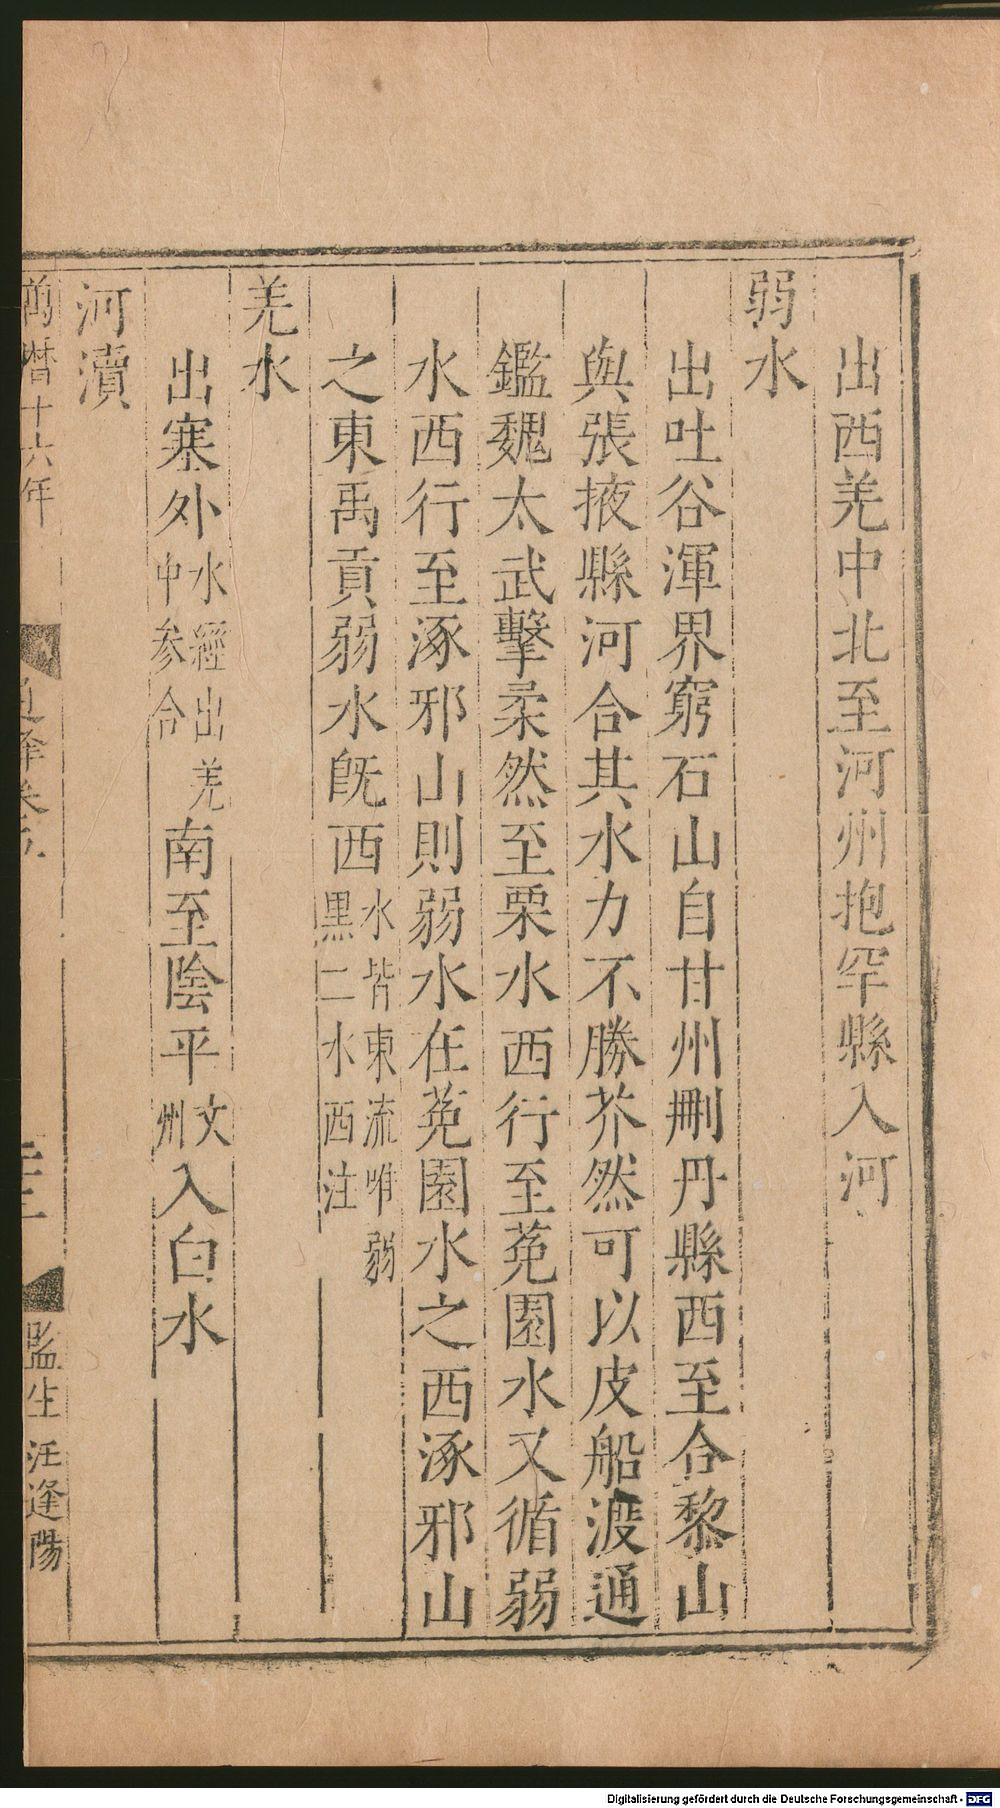 出西羌中北至河州抱罕縣入河
弱水
出吐谷渾界窮石山自甘州刪丹縣西至合黎山
與張掖縣河合其水力不勝芥然可以皮船渡通
鑑魏太武擊柔然至栗水西行至菟園水又循弱
水西行至涿邪山則弱水在菟園水之西涿邪山
之東禹貢弱水旣西水皆東流唯弱黒二水西注
羌水
出塞外水經出羌中參合南至陰平文州入白水
河瀆
萬曆十六年
監生汪逢陽
Digitalisierung gefördert durch die Deutsche Forschungsgemeinschaft - DFG